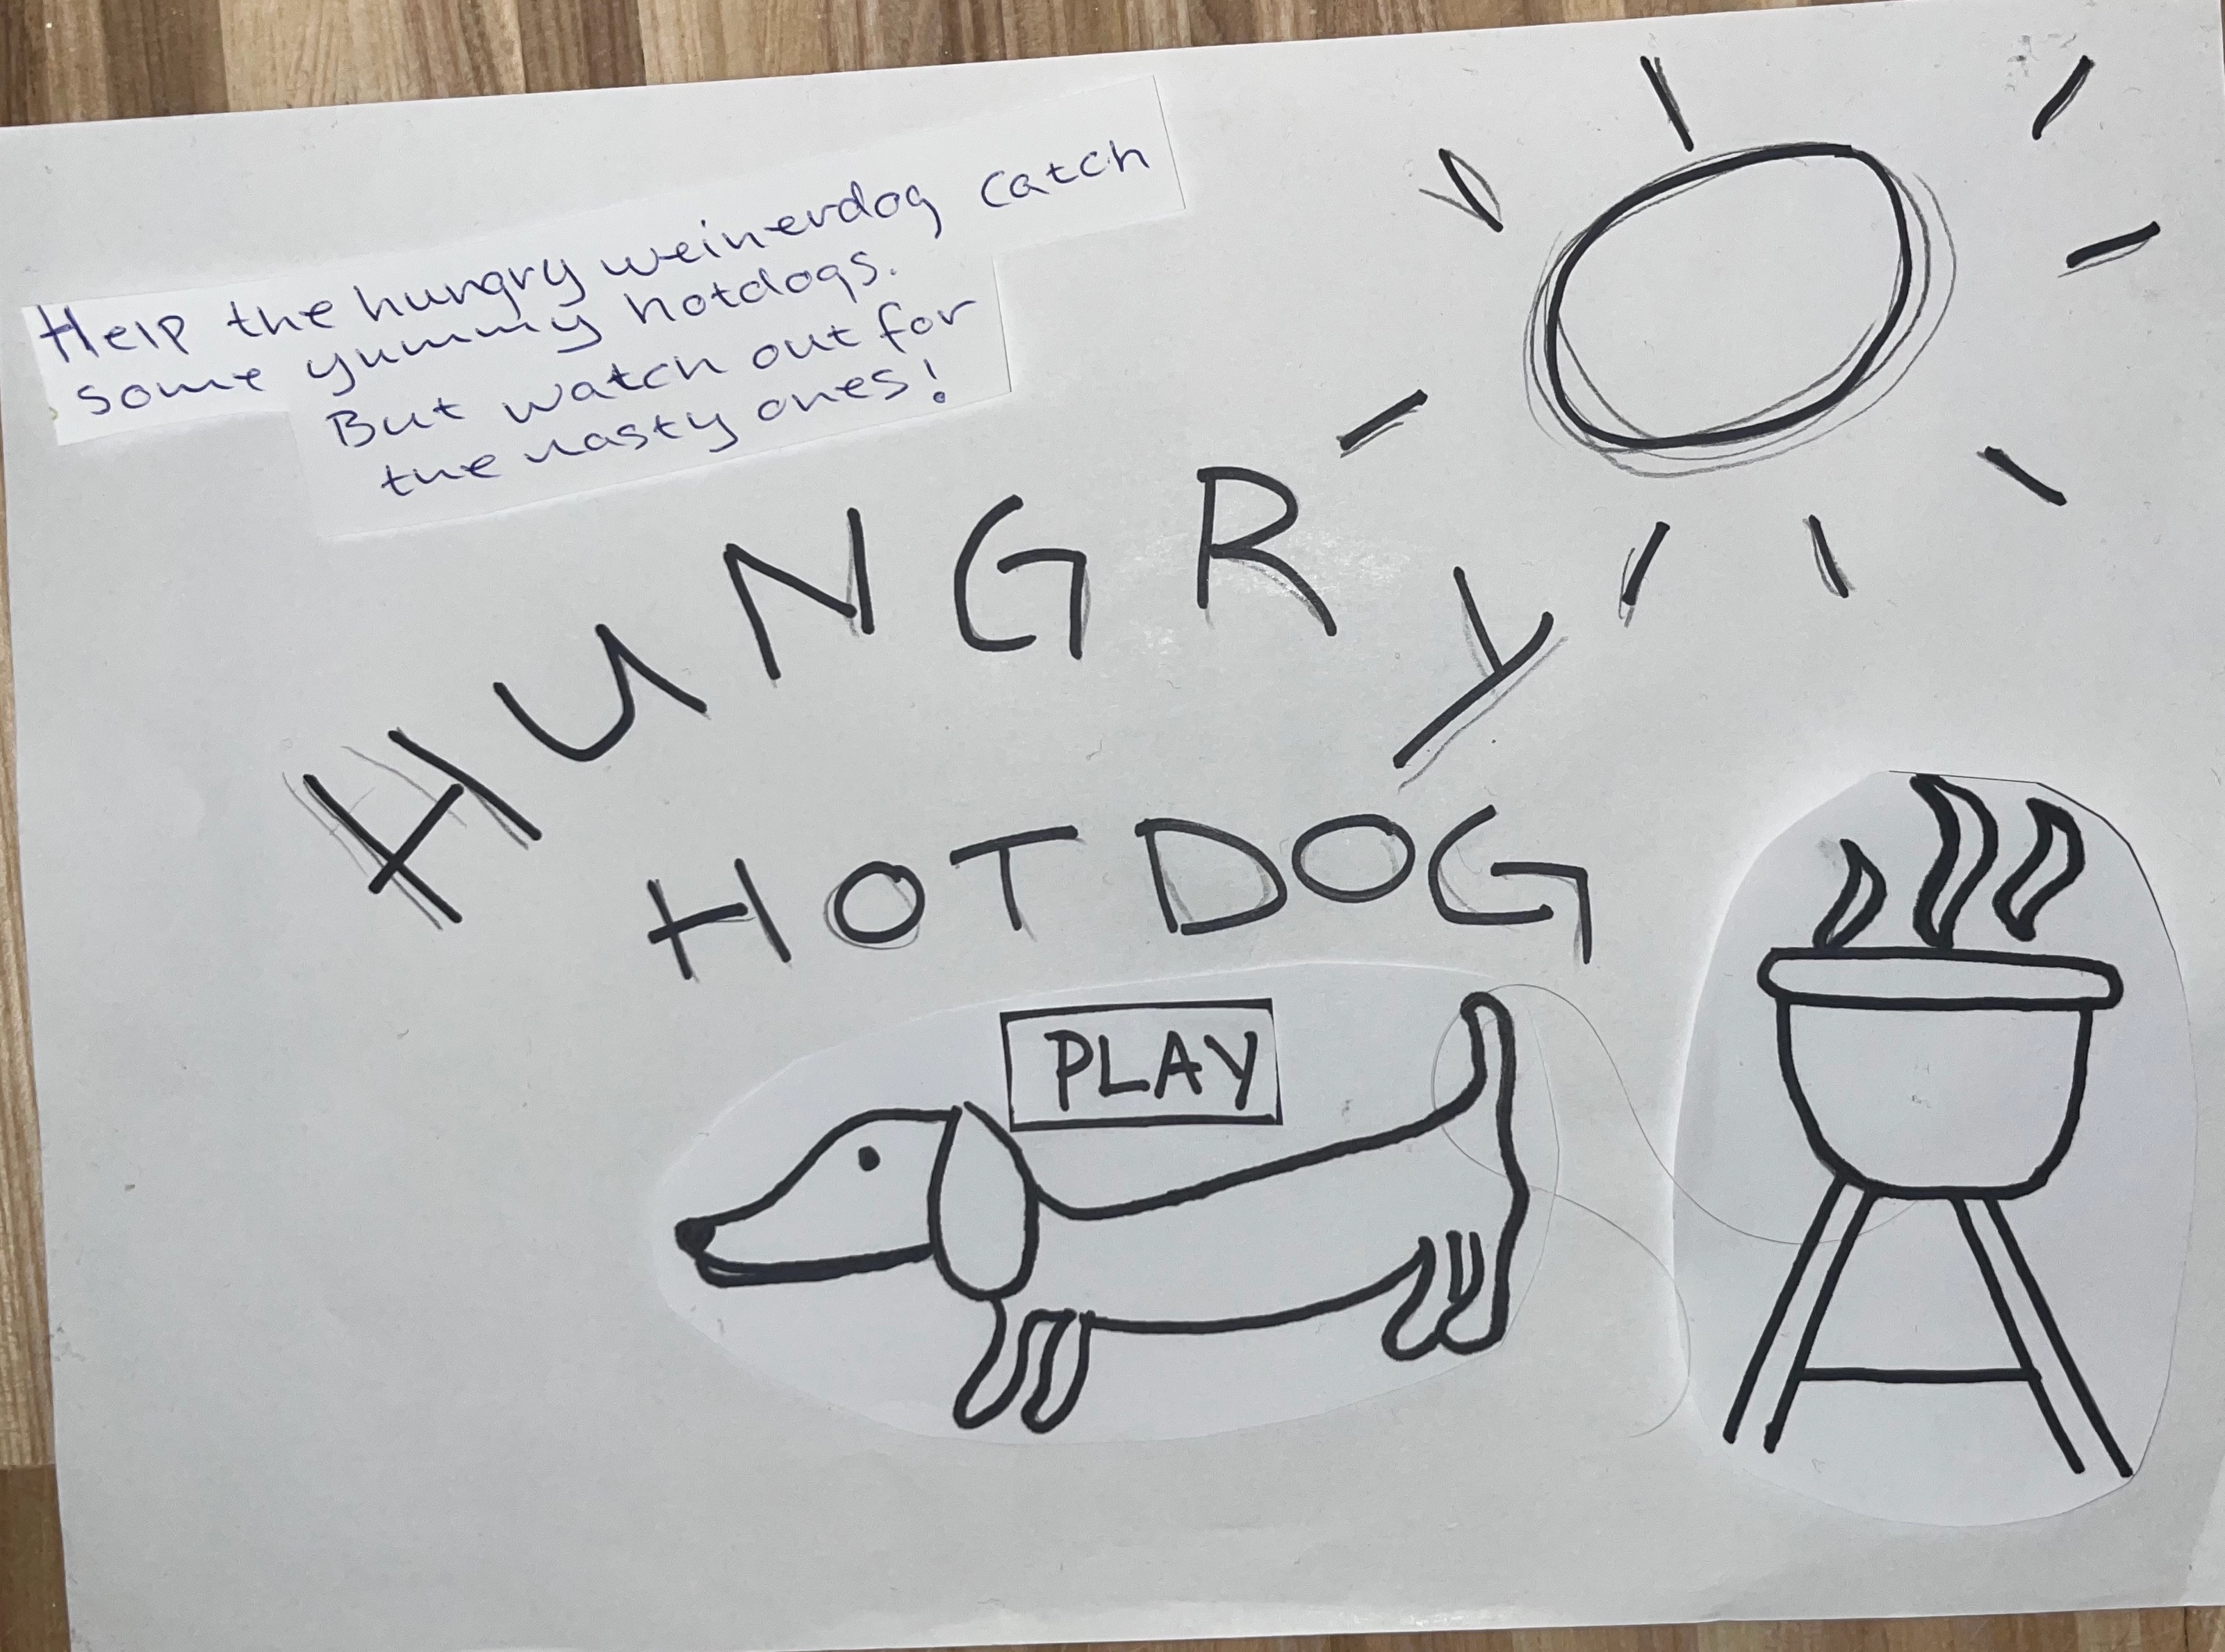 Help the hungry weinerdog catch
some yummy hotdogs.
But watch out for
the nasty ones!
HUNGRY
HOTDOG
PLAY